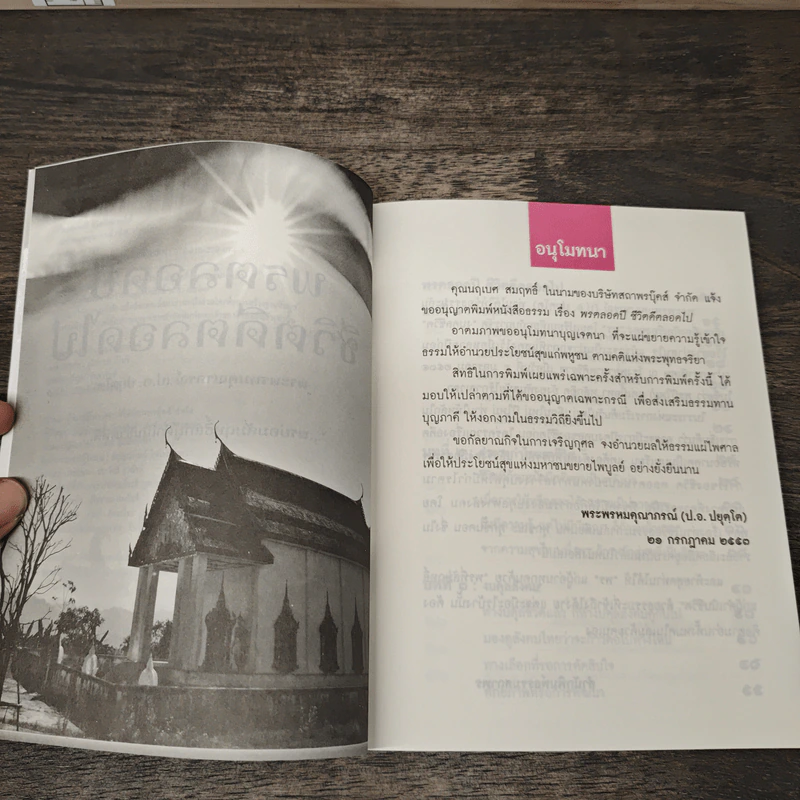 อนุโมทนา
คุณนฤเบศ สมฤทธิ์ ในนามของบริษัทสถาพรบุ๊คส์ จำกัด แจ้ง
ขออนุญาตพิมพ์หนังสือธรรม เรื่อง พรตลอดปี ชีวิตดีตลอดไป
อาตมภาพขออนุโมทนาบุญเจตนา ที่จะแผ่ขยายความรู้เข้าใจ
ธรรมให้อำนวยประโยชน์สุขแก่พหูชน ตามคติแห่งพระพุทธจริยา
สิทธิในการพิมพ์เผยแพร่เฉพาะครั้งสำหรับการพิมพ์ครั้งนี้ ได้
มอบให้เปล่าตามที่ได้ขออนุญาตเฉพาะกรณี เพื่อส่งเสริมธรรมทาน
บุญภาคี ให้งอกงามในธรรมวิถียิ่งขึ้นไป
ขอกัลยาณกิจในการเจริญกุศล จงอำนวยผลให้ธรรมแผ่ไพศาล
เพื่อให้ประโยชน์สุขแห่งมหาชนขยายไพบูลย์ อย่างยั่งยืนนาน
พระพรหมคุณาภรณ์ (ป.อ. ปยุตฺโต)
๒๑ กรกฎาคม ๒๕๕๓